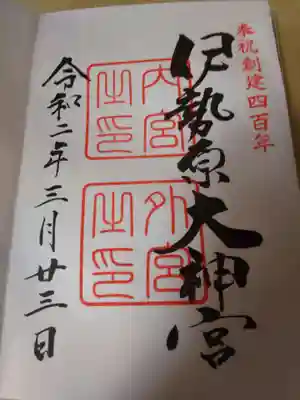 奉祝創建四百年
伊勢原大神宮
内宮之印
外宮之印
令和二年三月廿三日